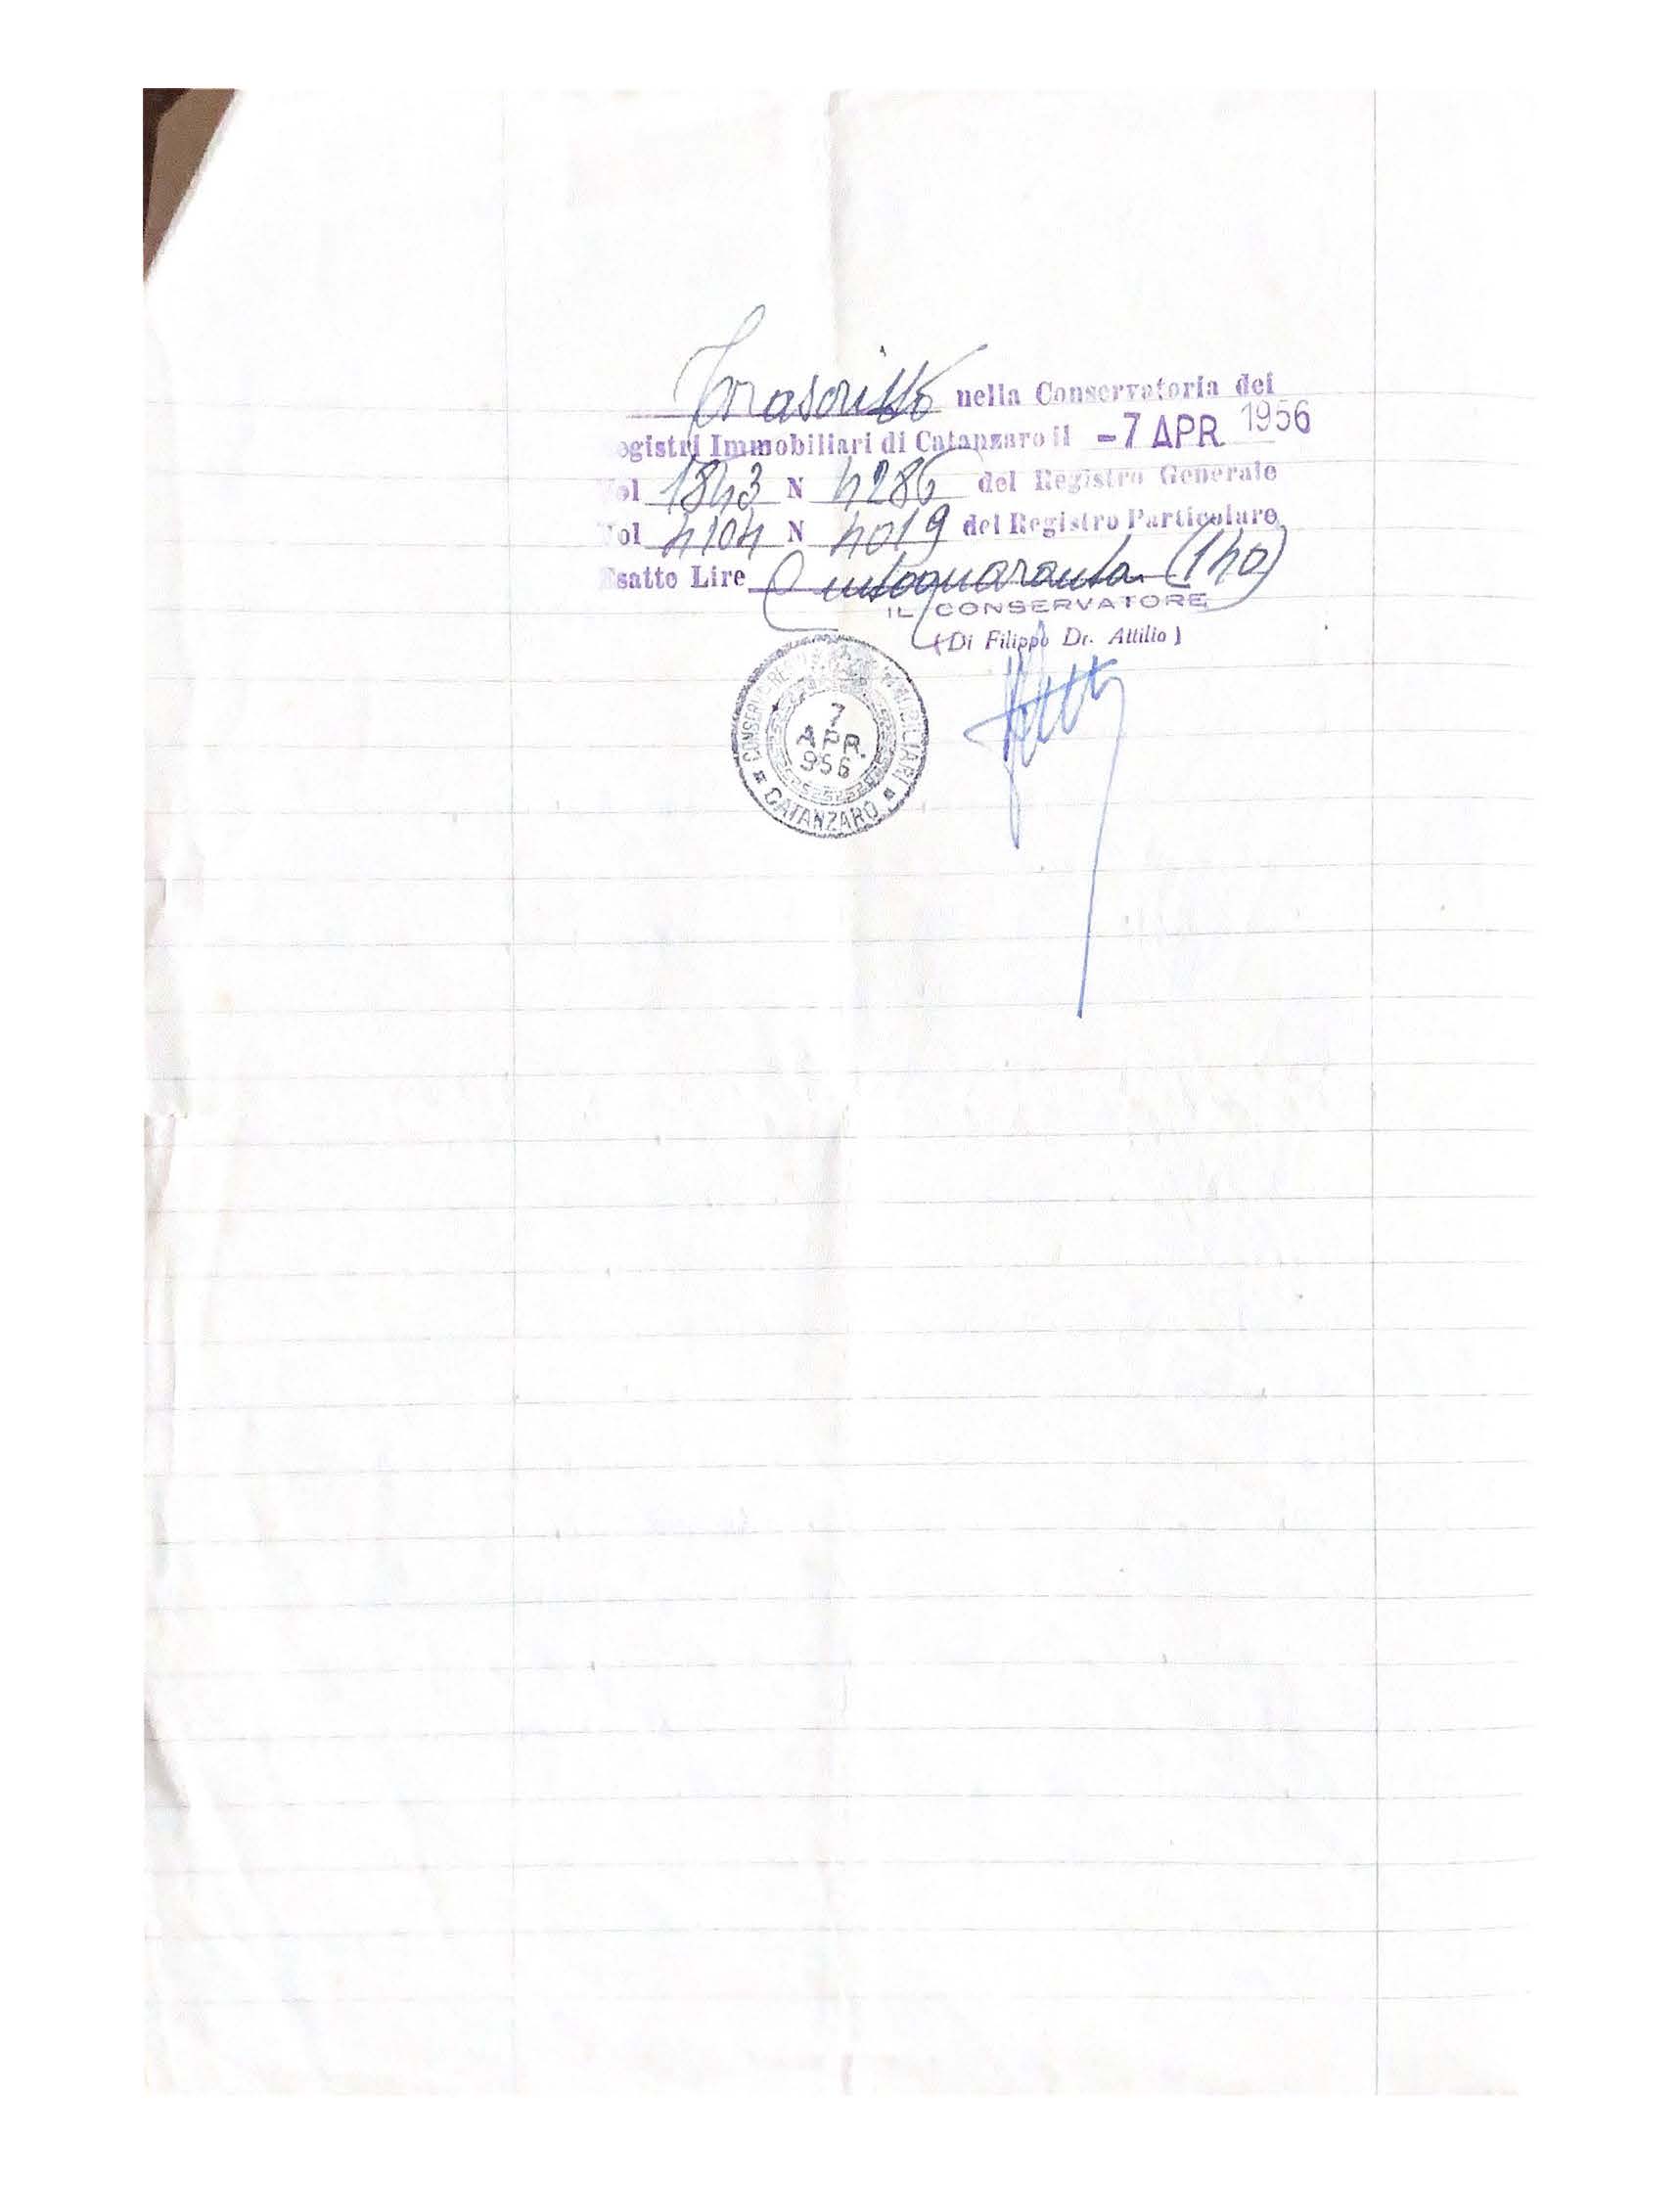 Trascritto nella Conservatoria dei
egistri Immobiliari di Catanzaro il -7 APR. 1956
Vol 1843 N 4286 del Registro Generale
Vol 4104 N 4019 del Registro Particolare
Esatte Lire Centoquaranta (140)
IL CONSERVATORE
(Di Filippo Dr. Attilio)
7
APR.
956
CATANZARO